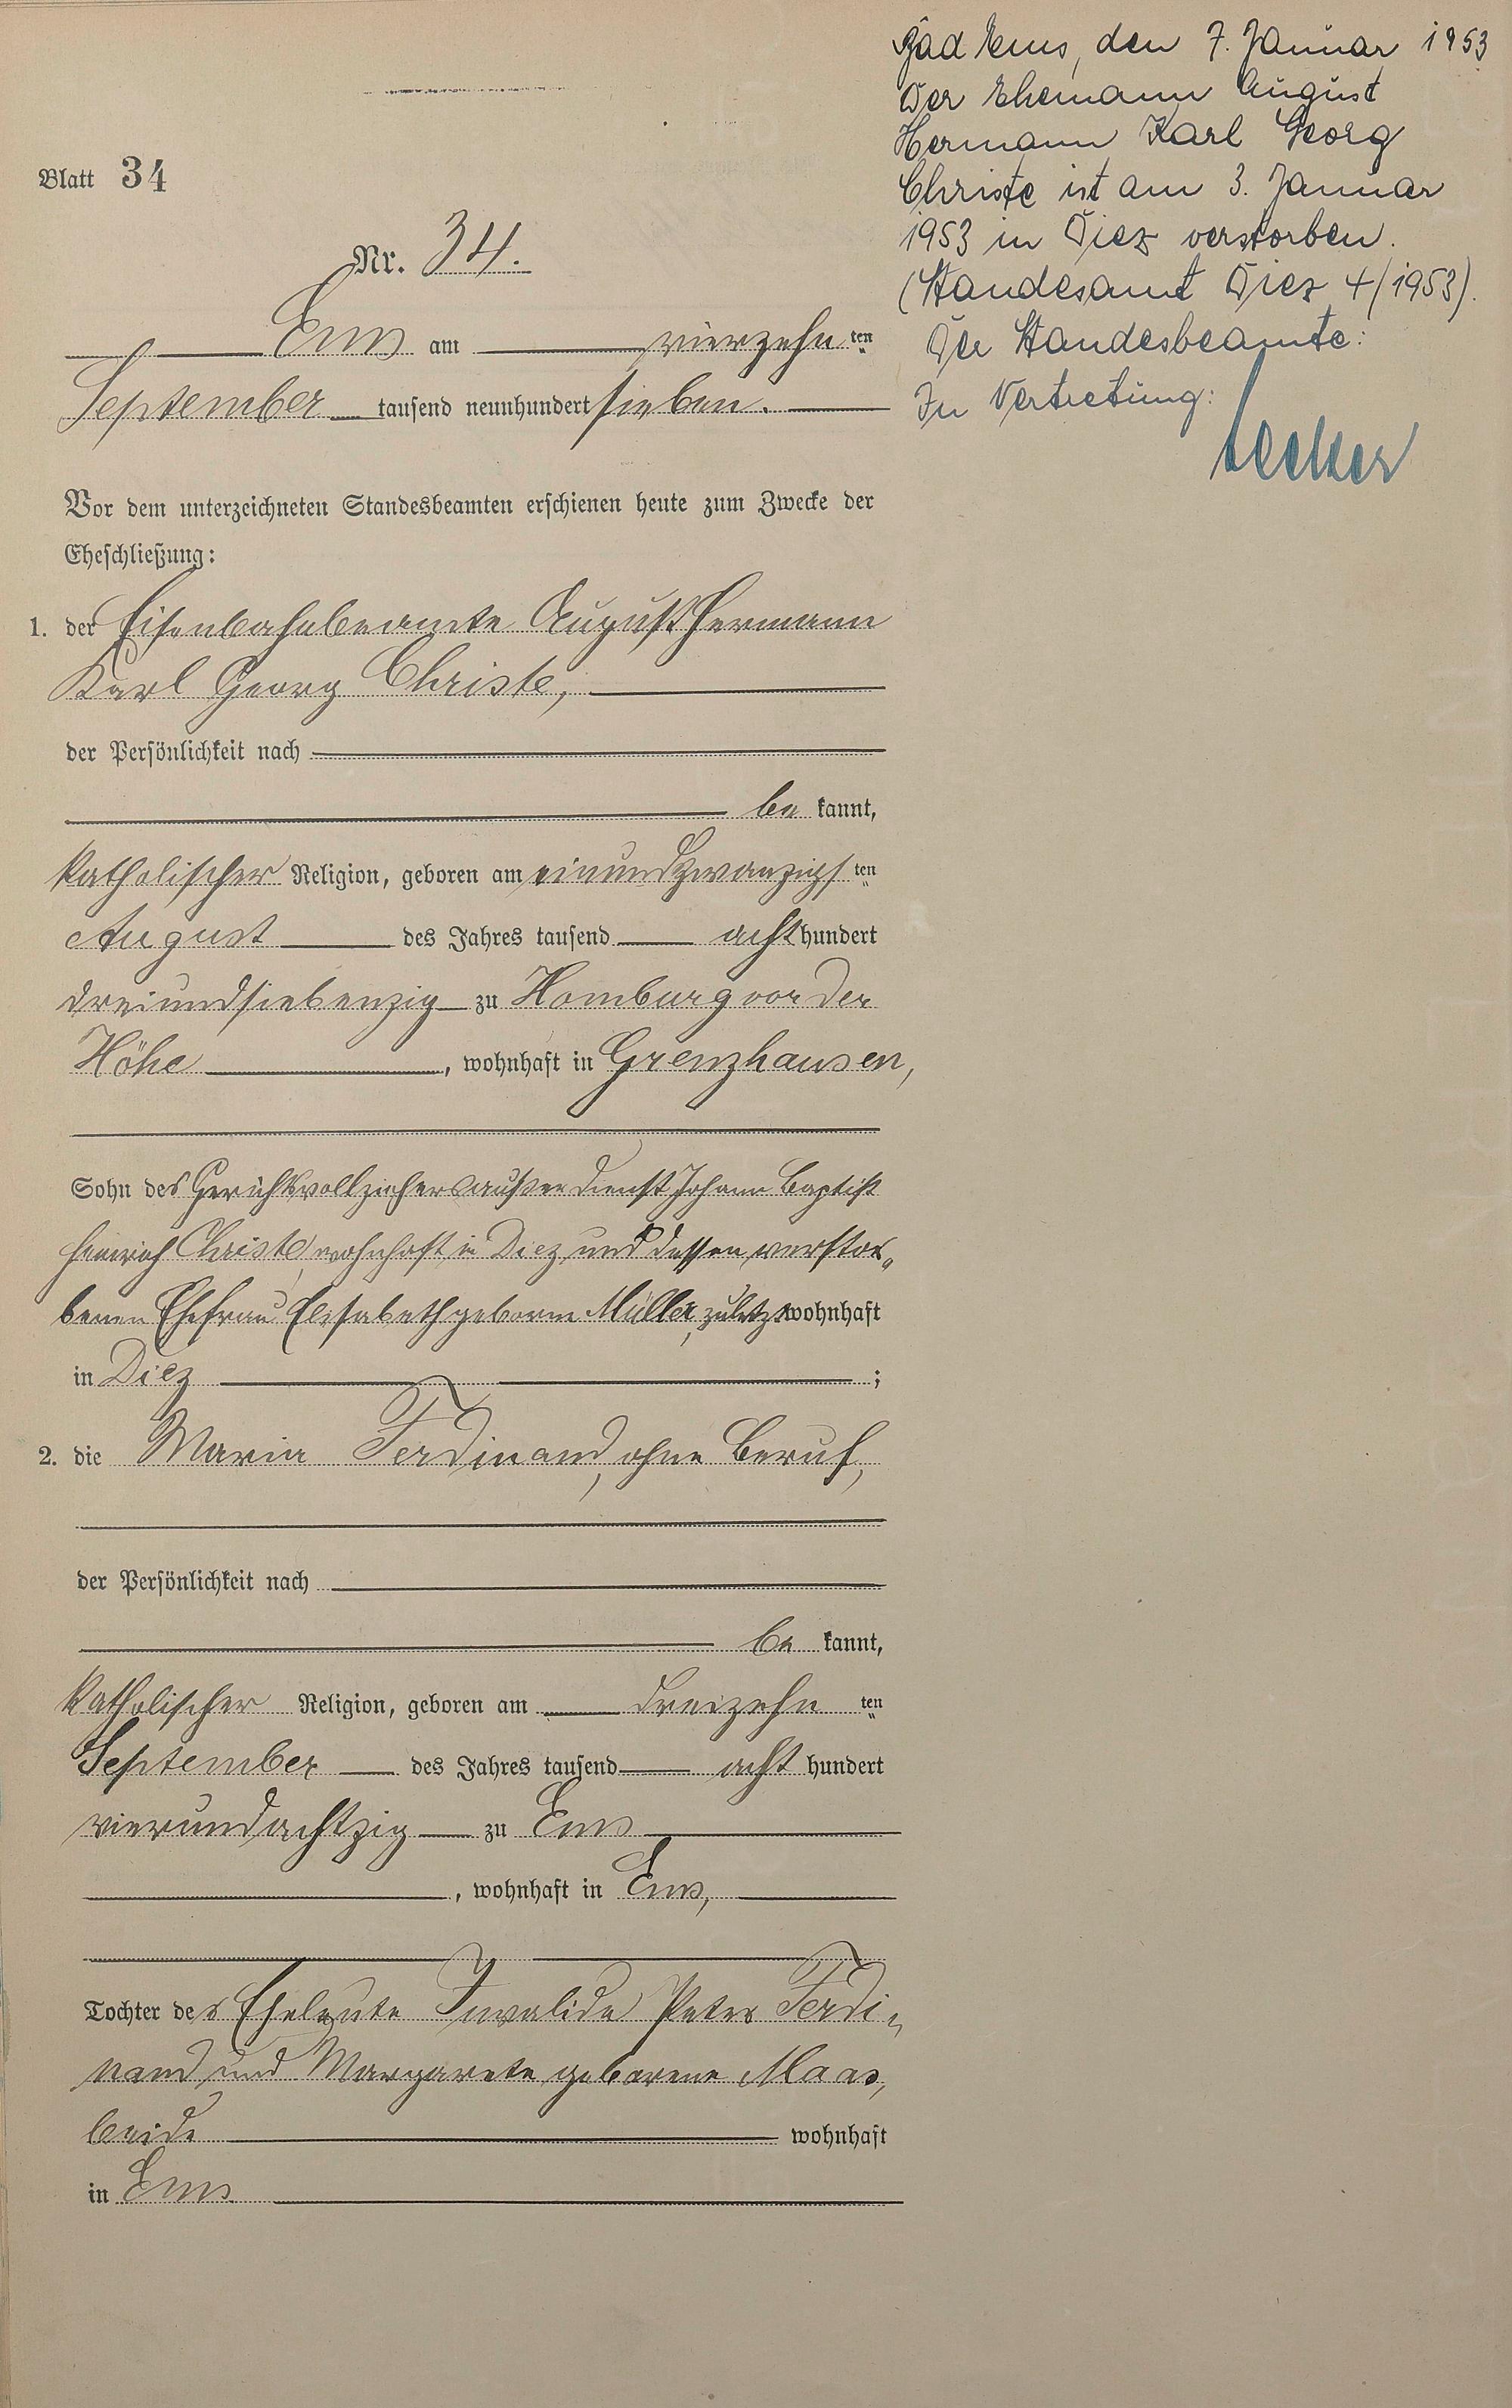 Blatt 34
Nr. 34.
Ems am vierzehn ten
September tausend neunhundert sieben.
Vor dem unterzeichneten Standesbeamten erschienen heute zum Zwecke der
Eheschließung:
1. der Eisenbahnbeamte August Hermann
Karl Georg Christe,
der Persönlichkeit nach
be kannt,
katholischer Religion, geboren am einundzwanzigs ten
August des Jahres tausend acht hundert
dreiundsiebenzig zu Homburg vor der
Höhe, wohnhaft in Grenzhausen,
Sohn des Gerichtsvollziehers außer Dienst Johann Baptist
Heinrich Christe, wohnhaft in Diez und dessen verstor„
benen Ehefrau Elisabeth geborne Müller, zuletzt wohnhaft
in Diez ;
2. die Maria Ferdinand, ohne Beruf,
der Persönlichkeit nach
be kannt,
katholischer Religion, geboren am dreizehn ten
September des Jahres tausend acht hundert
vierundachtzig zu Ems
, wohnhaft in Ems,
Tochter der Eheleute Invalide Peter Ferdi„
nand und Margarete geborene Maas,
beide wohnhaft
in Ems
Bad Ems, den 7. Januar 1953
Der Ehemann August
Hermann Karl Georg
Christe ist am 3. Januar
1953 in Diez verstorben.
(Standesamt Diez 4/1953).
Der Standesbeamte:
In Vertretung: